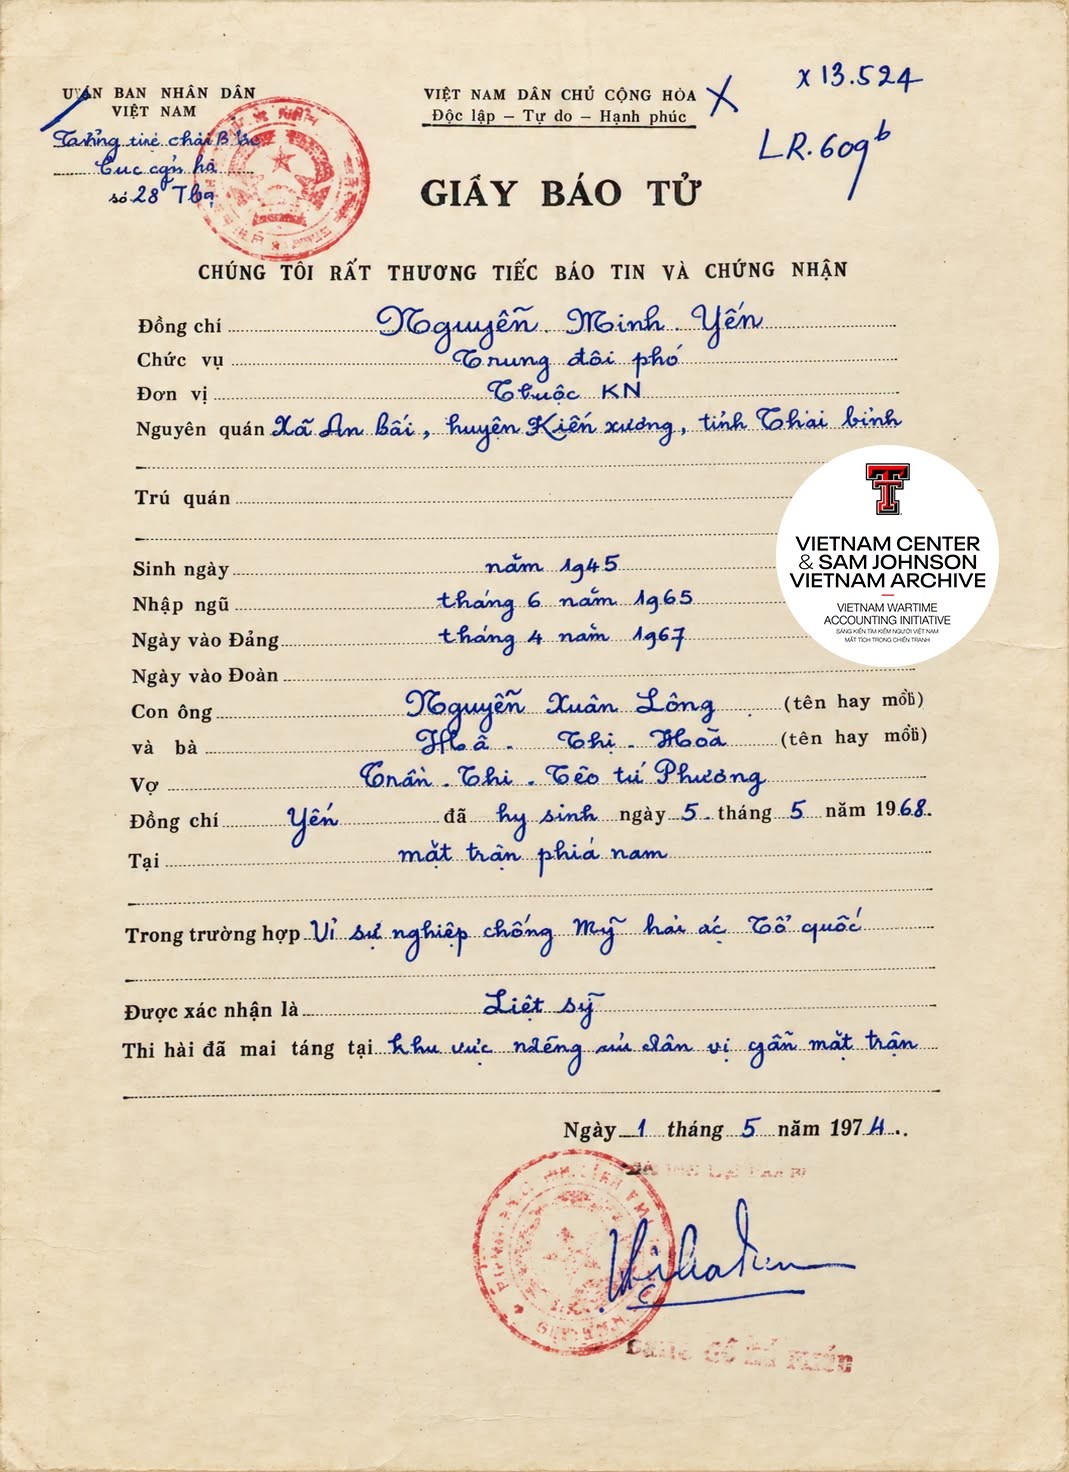 UỶAN BAN NHÂN DÂN
VIỆT NAM
số 28
VIỆT NAM DÂN CHỦ CỘNG HÒA
Độc lập – Tự do – Hạnh phúc
X
x 13.524
LR.609b
GIẤY BÁO TỬ
CHÚNG TÔI RẤT THƯƠNG TIẾC BÁO TIN VÀ CHỨNG NHẬN
Đồng chí Nguyễn Minh Yến
Chức vụ Trung đôi phó
Đơn vị Thuộc KN
Nguyên quán Xã An Bái, huyện Kiến xương, tỉnh Thái bỉnh
Trú quán
Sinh ngày năm 1945
Nhập ngũ tháng 6 năm 1965
Ngày vào Đảng tháng 4 năm 1967
Ngày vào Đoàn
Con ông Nguyễn Xuân Lông (tên hay mồn)
và bà Thị Hoà (tên hay mồn)
Vợ Trần Thi Tẽo tú Phương
Đồng chí Yến đã hy sinh ngày 5 tháng 5 năm 1968.
Tại mặt trận phiá nam
Trong trường hợp Vì sự nghiệp chống Mỹ Tổ quốc
Được xác nhận là Liệt sỹ
Thi hài đã mai táng tại khu vực gần mặt trận
Ngày 1 tháng 5 năm 1974
VIETNAM CENTER
& SAM JOHNSON
VIETNAM ARCHIVE
VIETNAM WARTIME
ACCOUNTING INITIATIVE
SÁNG KIẾN TÌM KIẾM NGƯỜI VIỆT NAM
MẤT TÍCH TRONG CHIẾN TRANH